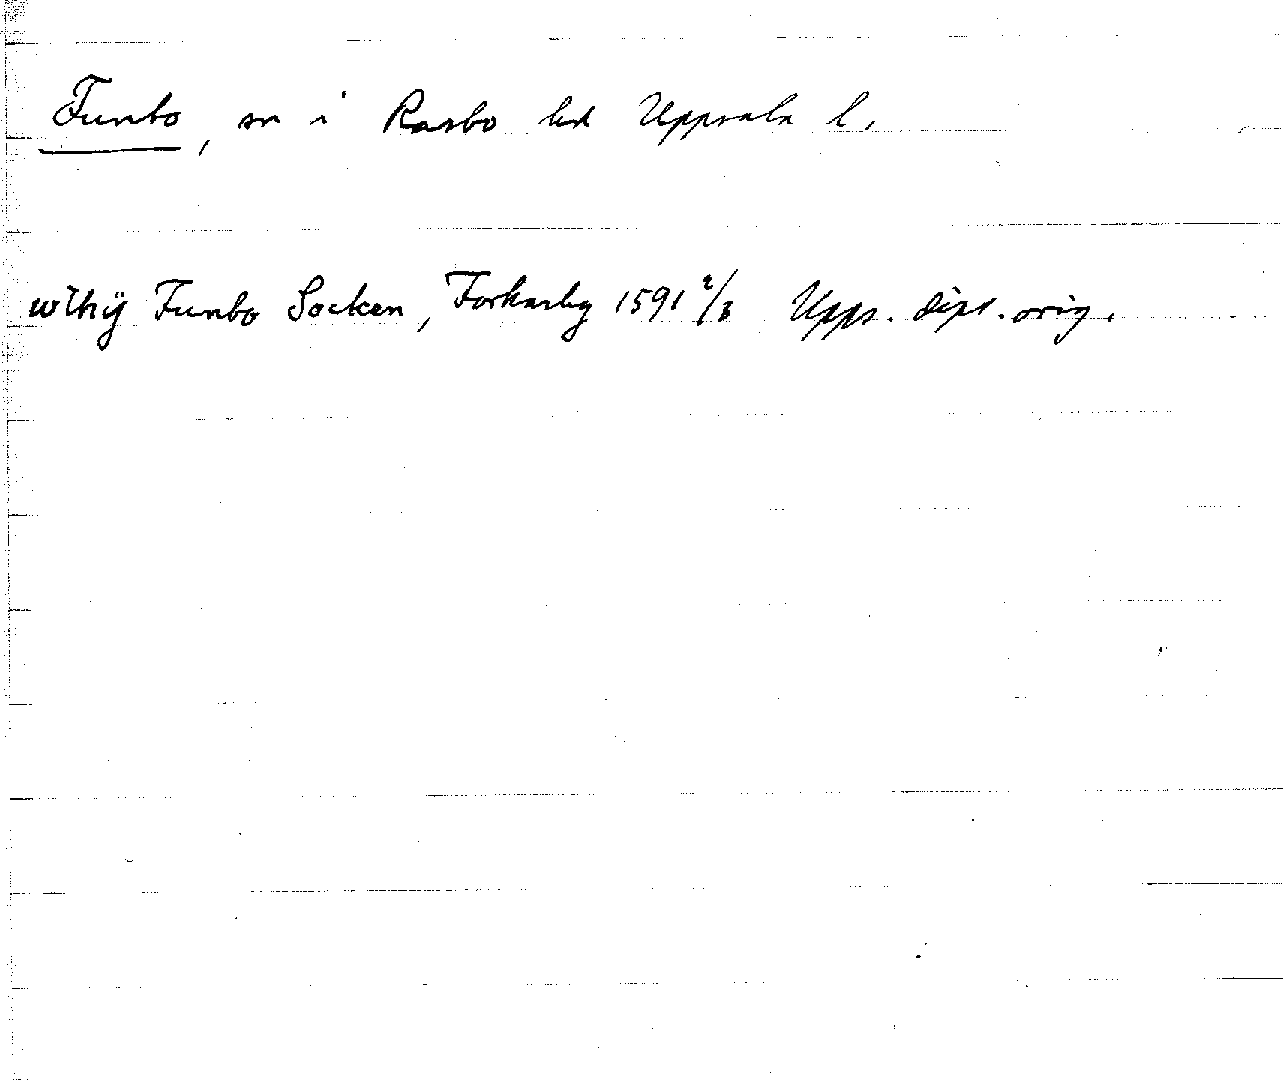 Funbo, sn i Rasbo hd Uppsala l.
wthÿ Funbo Socken, Forkarby 1591 2/3 Upps. dipl. orig.